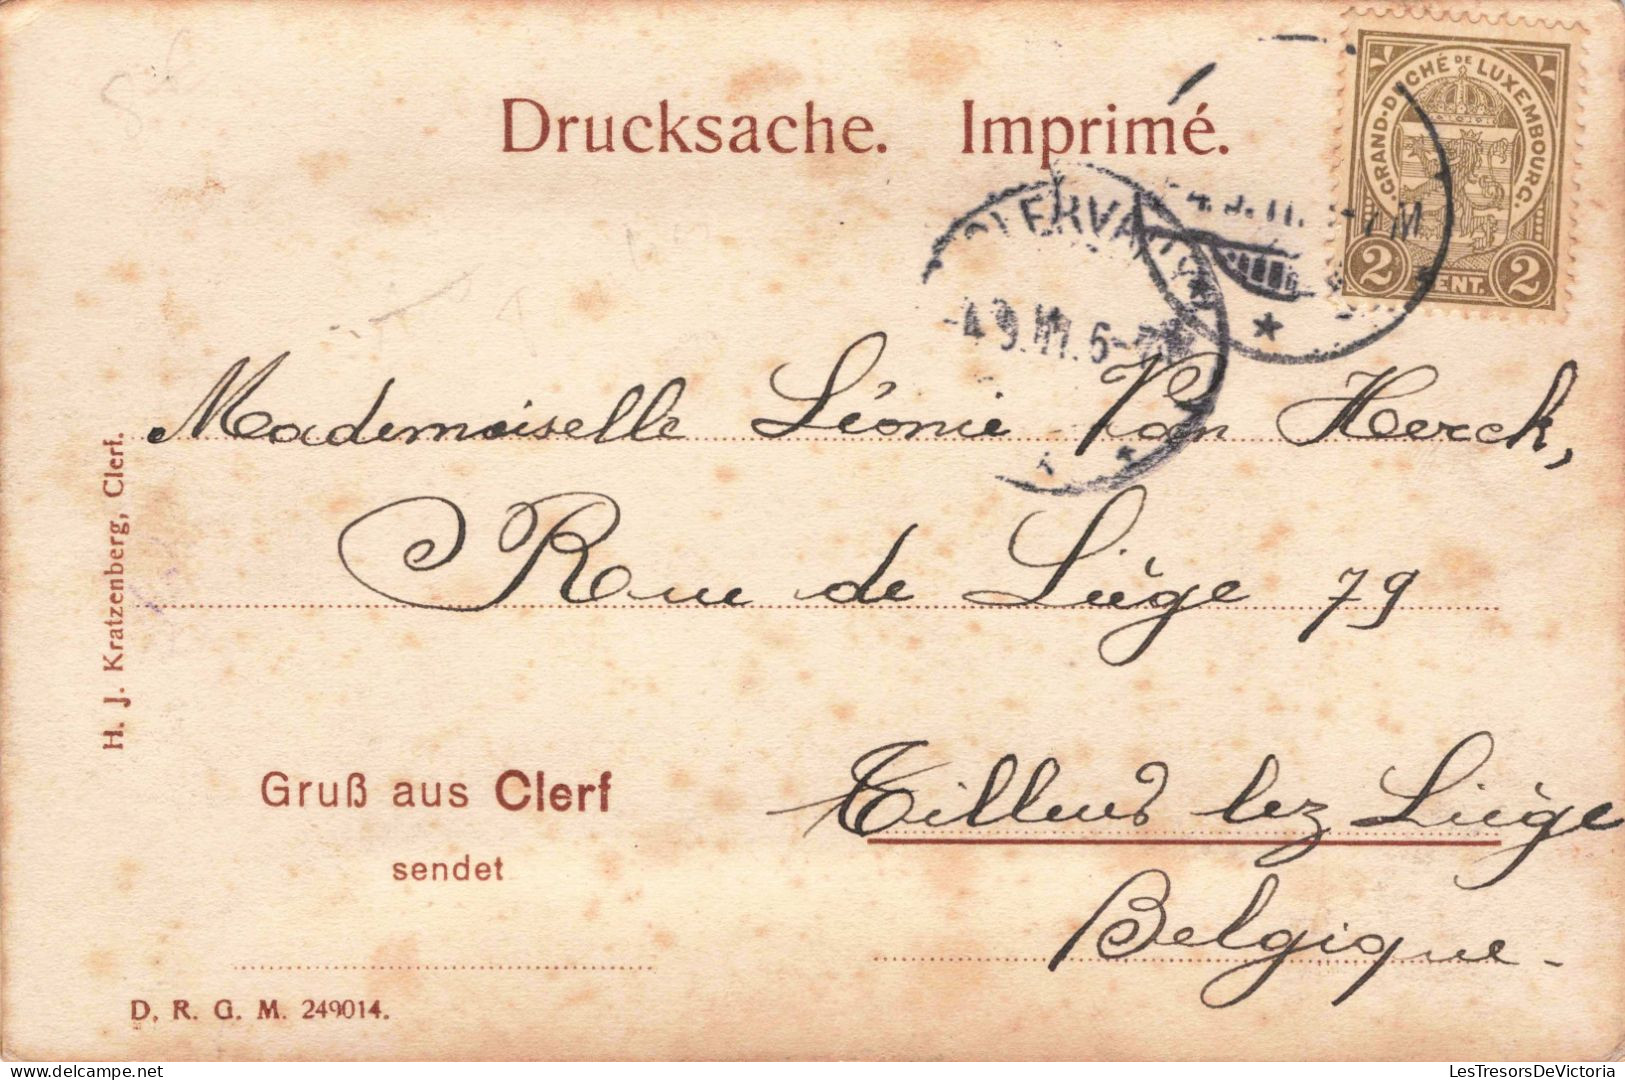 Drucksache. Imprimé.
GRAND-DUCHÉ DE LUXEMBOURG.
2 CENT. 2
CLERVAUX
-4.9.11. 6-7
Mademoiselle Léonie Van Herck,
Rue de Liège 79
Tilleur lez Liège
Belgique -
H. J. Kratzenberg, Clerf.
Gruß aus Clerf
sendet
D. R. G. M. 249014.
delcampe.net
LesTresorsDeVictoria